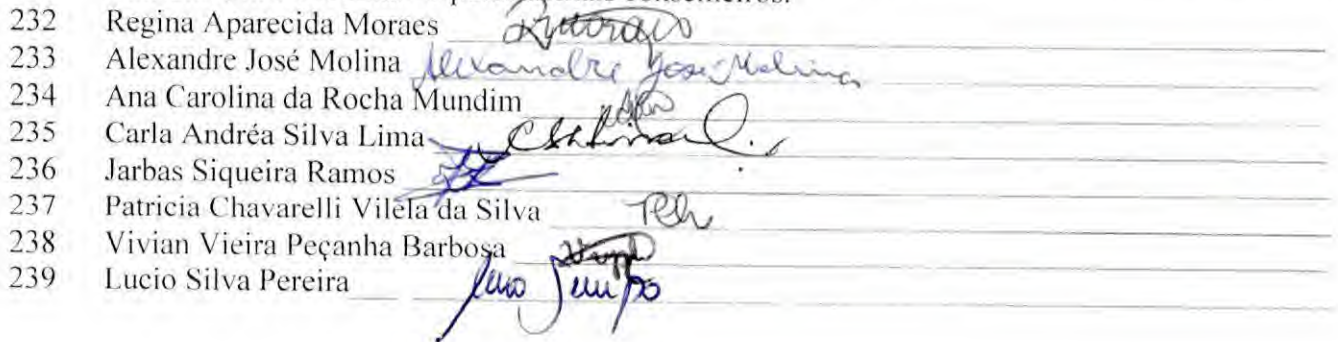 conselheiros.
232 Regina Aparecida Moraes
233 Alexandre José Molina Alexandre José Molina
234 Ana Carolina da Rocha Mundim
235 Carla Andréa Silva Lima
236 Jarbas Siqueira Ramos
237 Patricia Chavarelli Vilela da Silva
238 Vivian Vieira Peçanha Barbosa
239 Lucio Silva Pereira